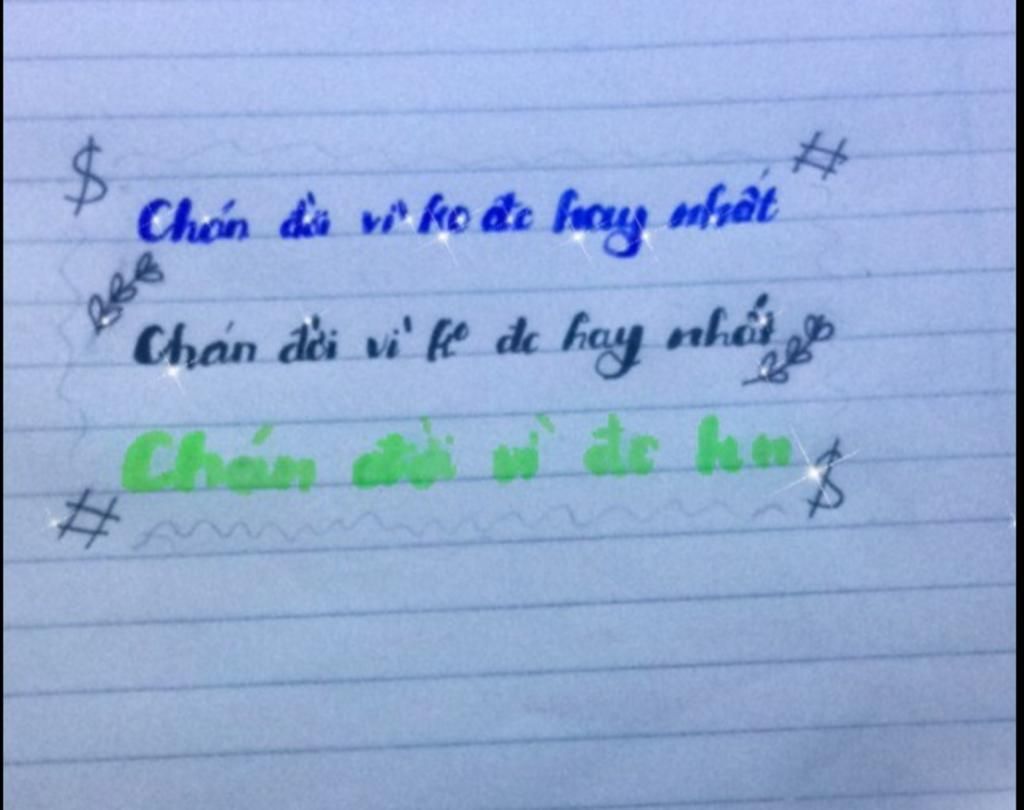 $ #
Chán đời vì ko đc hay nhất
Chán đời vì ko đc hay nhất
Chán đời vì đc hn
# $